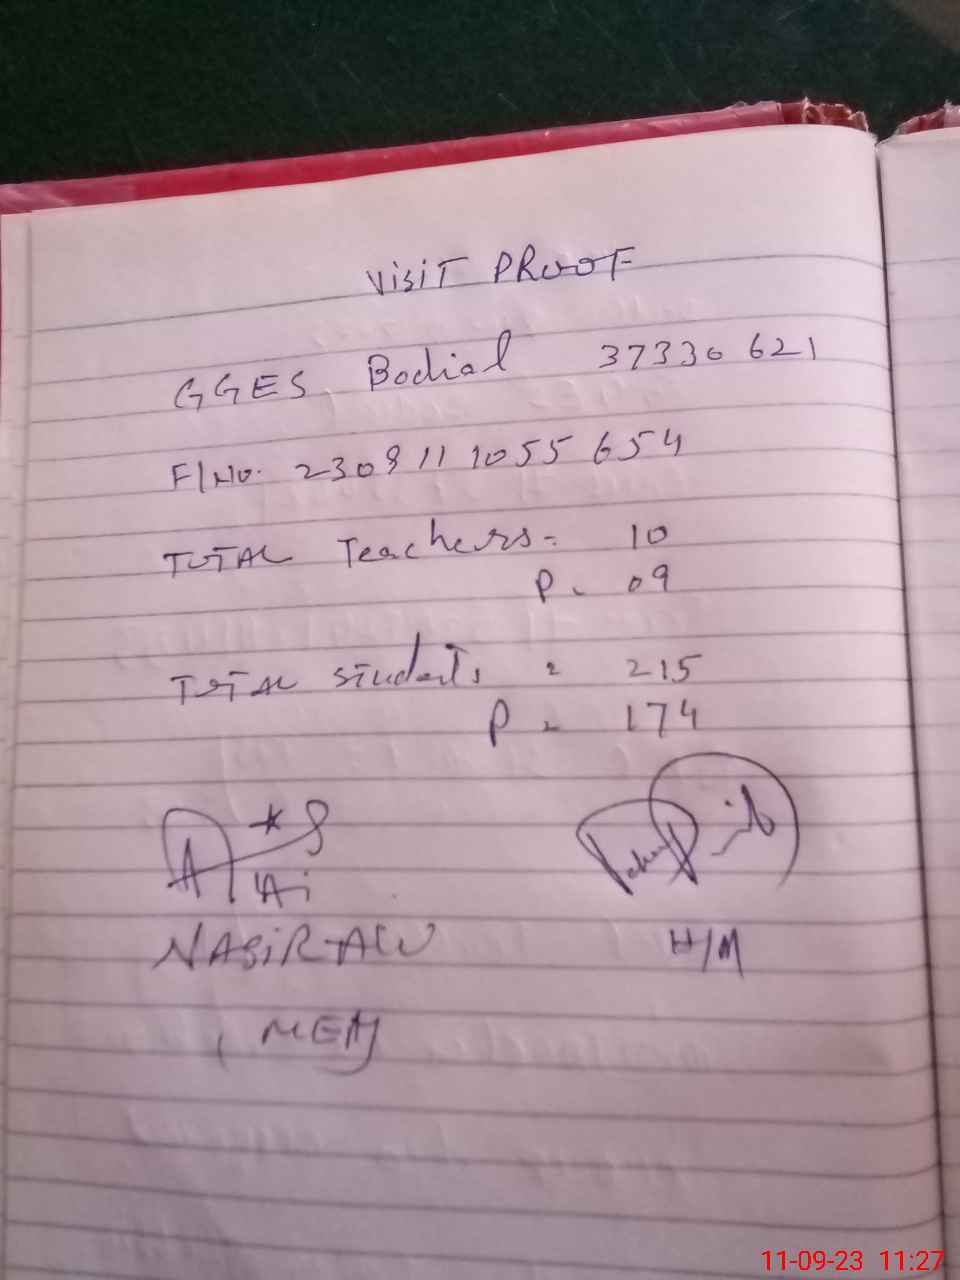 VisiT PRooF
GGES Bodial 37330621
F/No. 2309111055654
TOTAL Teachers = 10
P = 09
TOTAL Students = 215
P = 174
NASiR ALi
H/M
MEA
11-09-23 11:27